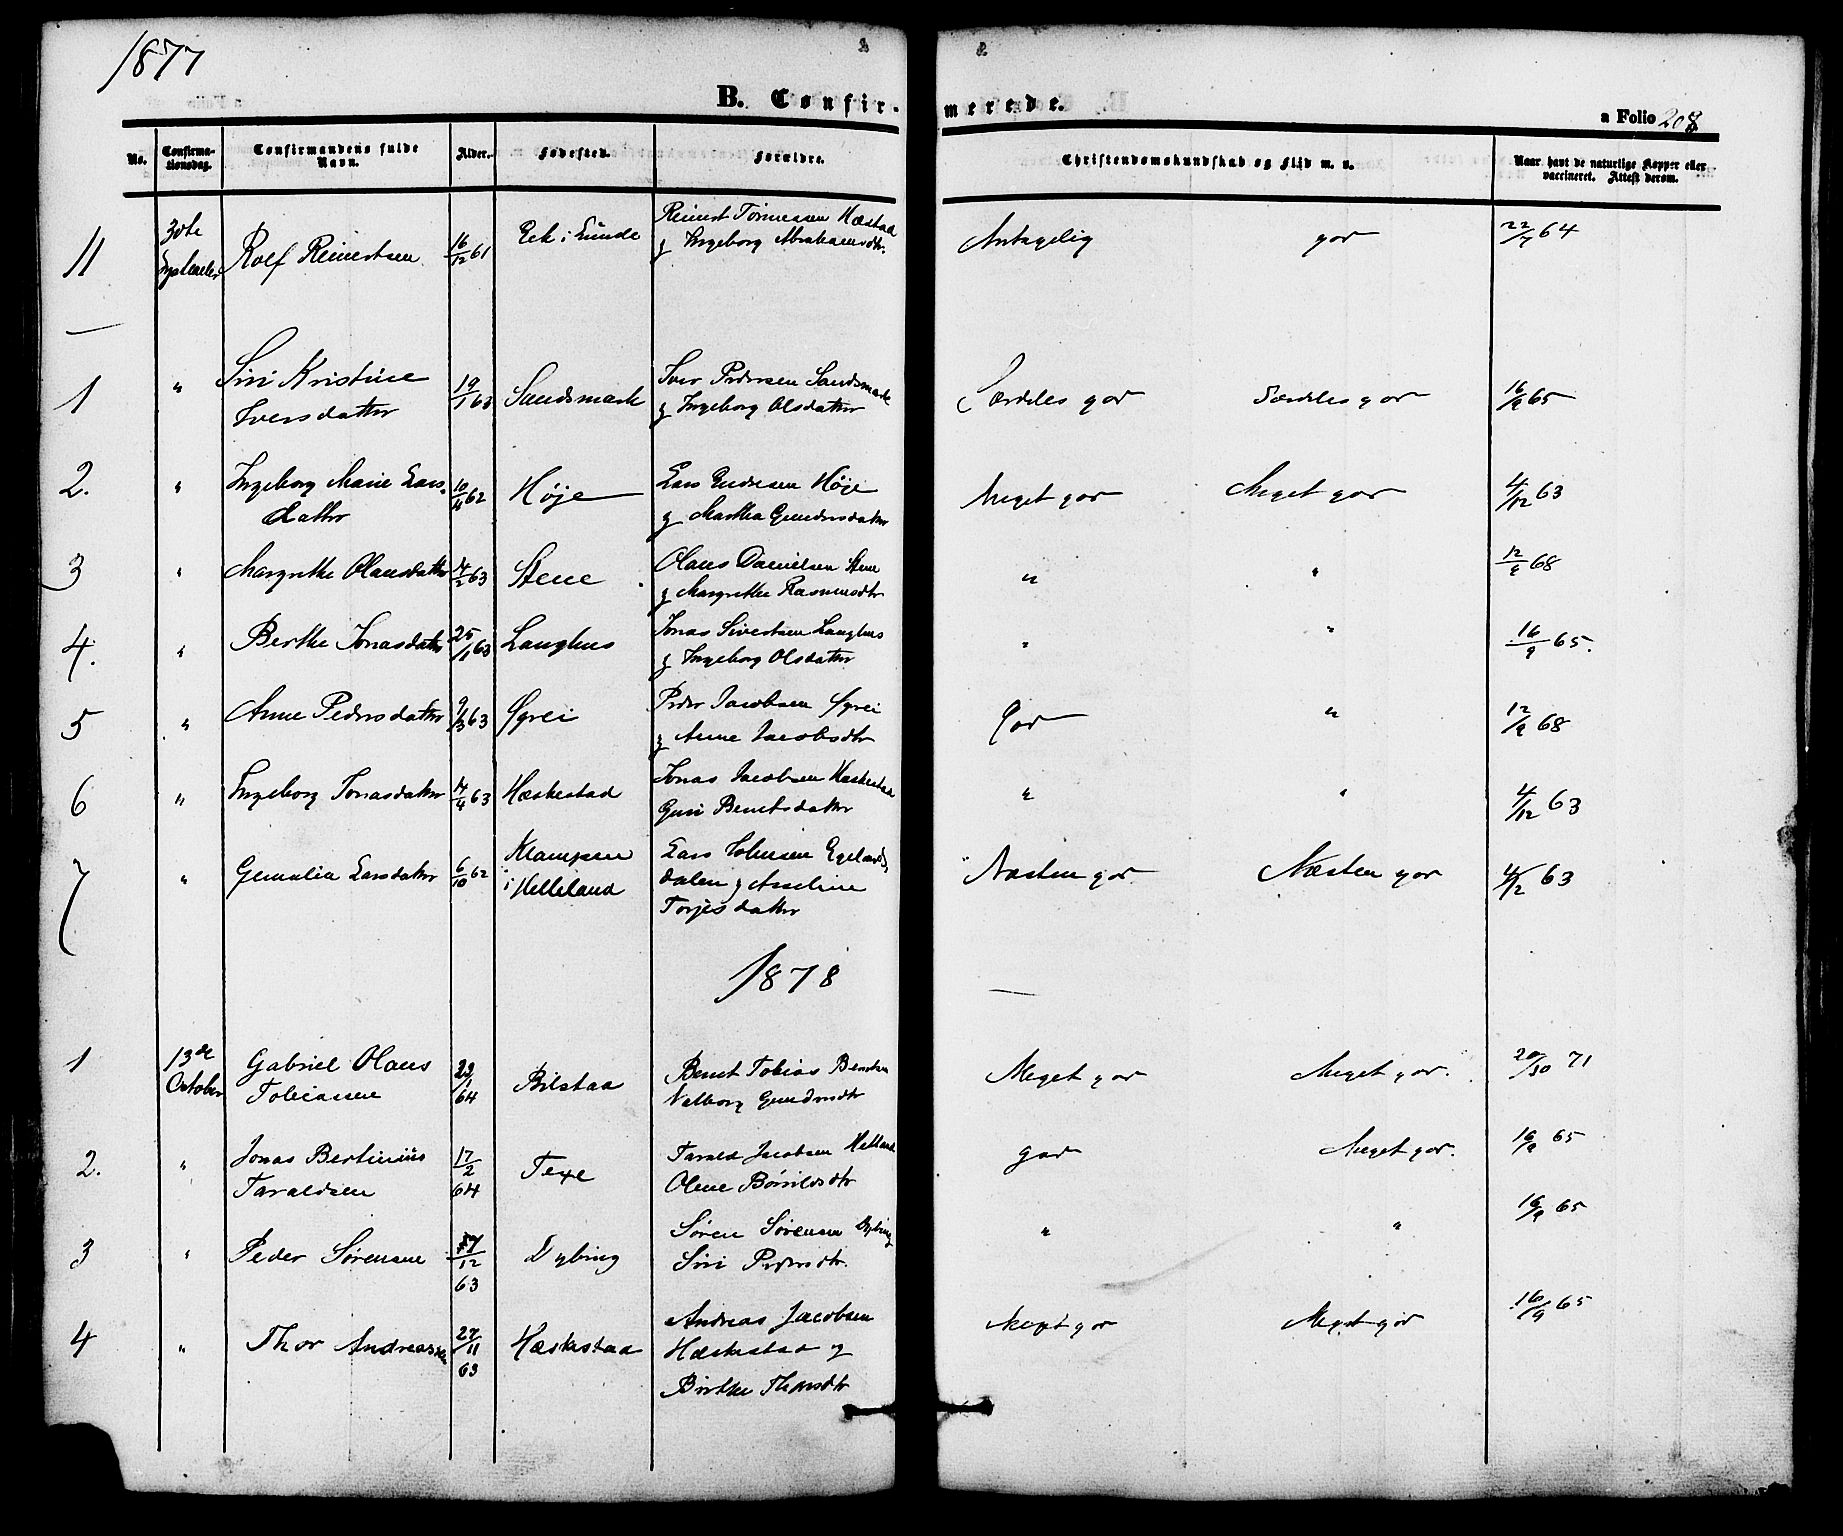 1877
B. Confir- merede.
a Folio 208
No.
Confirma-
tionsdag.
Confirmandens fulde
Navn.
Alder.
Fødested.
Forældre.
Christendomskundskab og Flid m. v.
Naar havt de naturlige Kopper eller
vaccineret. Attest derom.
11 30te September Rolf Reinertsen 16/12 61 Eek i Lunde
Reinert Tønnessen Hæstad
g Ingeborg Abrahamsdtr.
Antagelig god 22/7 64
1 " Siri Kristine
Iversdatter
19/1 63 Sandsmark
Iver Pedersen Sandsmark
g Ingeborg Olsdatter
Særdeles god Særdeles god 16/9 65
2. " Ingeborg Marie Lars-
datter
10/4 62 Høje
Lars Endresen Høje
g Martha Gundersdatter
Meget god Meget god 4/12 63
3 " Margrethe Olausdatter 14/2 63 Stene
Olaus Danielsen Stene
g Margrethe Rasmusdtr
" " 12/9 68
4. " Berthe Jonasdatter 25/1 63 Langhus
Jonas Sivertsen Langhus
g Ingeborg Olsdatter
" " 16/9 65.
5 " Anne Pedersdatter 9/3 63 Øyrei
Peder Jacobsen Øyrei
g Anne Jacobsdtr
God " 12/9 68
6 " Ingeborg Jonasdatter 14/4 63 Hæskestad
Jonas Jacobsen Hæskestad
Guri Bentsdatter
" " 4/12 63
7 " Gemalia Larsdatter 6/10 62 Klampen
i Helleland
Lars Johnsen Egelands
dalen g Asseline
Torjesdatter
Næsten god Næsten god 4/12 63
1878
1 13de
October
Gabriel Olaus
Tobiassen
23/1
64
Bilstad
Bernt Tobias Bentsen
Valborg Gundersdtr
Meget god Meget god. 20/10 71
2. " Jonas Bertinius
Taraldsen
17/2
64
Texe
Tarald Jacobsen Hetland
Olene Børildsdtr
god Meget god. 16/9 65
3 " Peder Sørensen 17/12
63
Dybing
Søren Sørensen Dybing
Siri Pedersdtr.
" " 16/9 65
4 " Thor Andreassen 27/11
63
Hæskestad
Andreas Jacobsen
Hæskestad og
Birthe Thorsdtr
Meget god Meget god 16/9 65